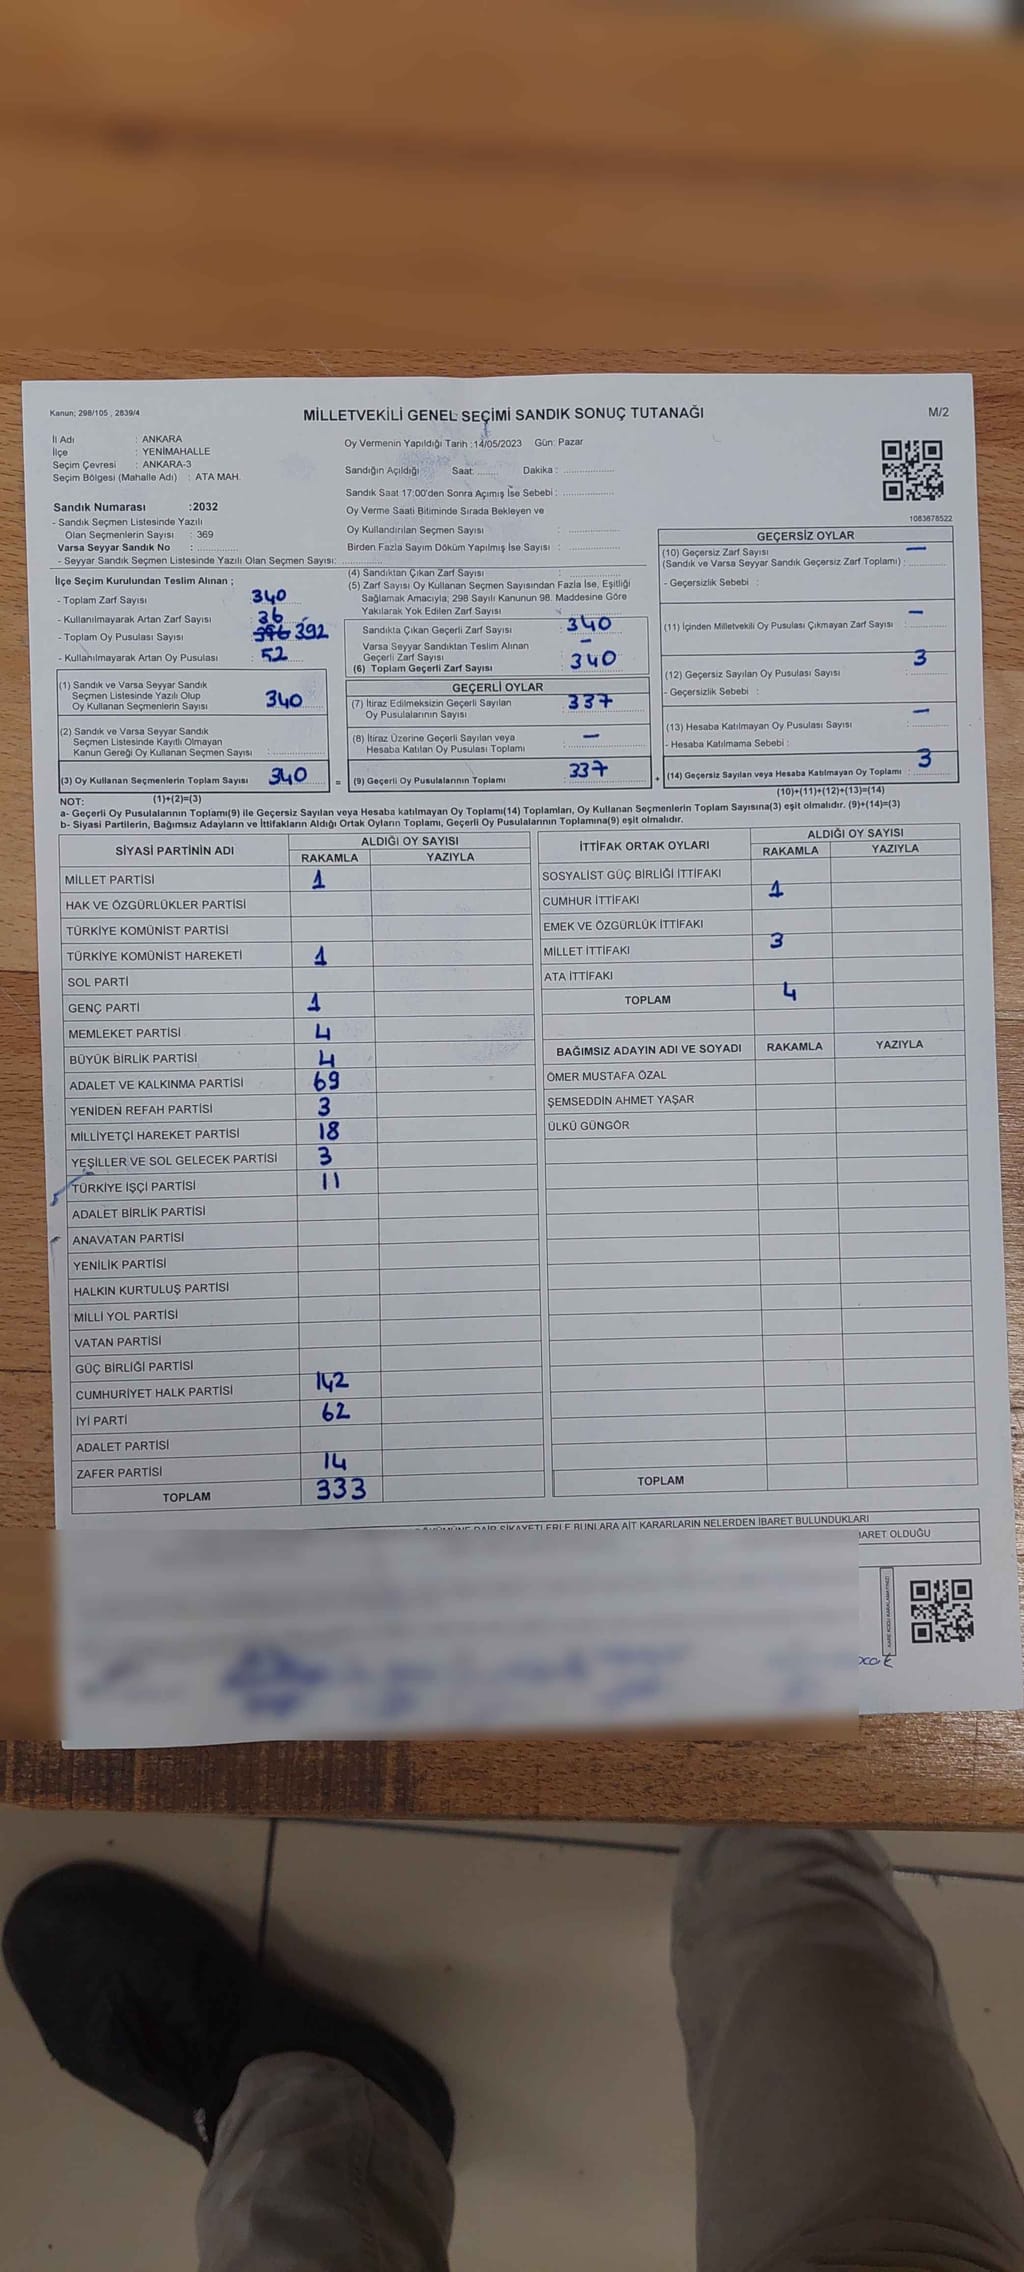 Kanun; 298/105 , 2839/4
MİLLETVEKİLİ GENEL SEÇİMİ SANDIK SONUÇ TUTANAĞI
M/2
İl Adı : ANKARA
İlçe : YENİMAHALLE
Seçim Çevresi : ANKARA-3
Seçim Bölgesi (Mahalle Adı) : ATA MAH.
Sandık Numarası :2032
- Sandık Seçmen Listesinde Yazılı
Olan Seçmenlerin Sayısı : 369
Varsa Seyyar Sandık No : ............
- Seyyar Sandık Seçmen Listesinde Yazılı Olan Seçmen Sayısı: ............
Oy Vermenin Yapıldığı Tarih :14/05/2023 Gün: Pazar
Sandığın Açıldığı Saat: ....... Dakika : ................
Sandık Saat 17:00'den Sonra Açımış İse Sebebi : ................
Oy Verme Saati Bitiminde Sırada Bekleyen ve
Oy Kullandırılan Seçmen Sayısı : ................
Birden Fazla Sayım Döküm Yapılmış İse Sayısı : ................
1083678522
İlçe Seçim Kurulundan Teslim Alınan ;
- Toplam Zarf Sayısı 340
- Kullanılmayarak Artan Zarf Sayısı : 36
- Toplam Oy Pusulası Sayısı : 396 392
- Kullanılmayarak Artan Oy Pusulası : 52
(1) Sandık ve Varsa Seyyar Sandık
Seçmen Listesinde Yazılı Olup
Oy Kullanan Seçmenlerin Sayısı 340
(2) Sandık ve Varsa Seyyar Sandık
Seçmen Listesinde Kayıtlı Olmayan
Kanun Gereği Oy Kullanan Seçmen Sayısı : ................
(3) Oy Kullanan Seçmenlerin Toplam Sayısı 340
(1)+(2)=(3)
(4) Sandıktan Çıkan Zarf Sayısı : ................
(5) Zarf Sayısı Oy Kullanan Seçmen Sayısından Fazla İse, Eşitliği
Sağlamak Amacıyla; 298 Sayılı Kanunun 98. Maddesine Göre
Yakılarak Yok Edilen Zarf Sayısı : ................
Sandıkta Çıkan Geçerli Zarf Sayısı : 340
Varsa Seyyar Sandıktan Teslim Alınan
Geçerli Zarf Sayısı : –
(6) Toplam Geçerli Zarf Sayısı : 340
GEÇERLİ OYLAR
(7) İtiraz Edilmeksizin Geçerli Sayılan
Oy Pusulalarının Sayısı : 337
(8) İtiraz Üzerine Geçerli Sayılan veya
Hesaba Katılan Oy Pusulası Toplamı : –
= (9) Geçerli Oy Pusulalarının Toplamı : 337
GEÇERSİZ OYLAR
(10) Geçersiz Zarf Sayısı –
(Sandık ve Varsa Seyyar Sandık Geçersiz Zarf Toplamı) : ........
- Geçersizlik Sebebi :
(11) İçinden Milletvekili Oy Pusulası Çıkmayan Zarf Sayısı : –
(12) Geçersiz Sayılan Oy Pusulası Sayısı : 3
- Geçersizlik Sebebi :
(13) Hesaba Katılmayan Oy Pusulası Sayısı : –
- Hesaba Katılmama Sebebi :
+ (14) Geçersiz Sayılan veya Hesaba Katılmayan Oy Toplamı : 3
(10)+(11)+(12)+(13)=(14)
NOT:
a- Geçerli Oy Pusulalarının Toplamı(9) ile Geçersiz Sayılan veya Hesaba katılmayan Oy Toplamı(14) Toplamları, Oy Kullanan Seçmenlerin Toplam Sayısına(3) eşit olmalıdır. (9)+(14)=(3)
b- Siyasi Partilerin, Bağımsız Adayların ve İttifakların Aldığı Ortak Oyların Toplamı, Geçerli Oy Pusulalarının Toplamına(9) eşit olmalıdır.
SİYASİ PARTİNİN ADI
ALDIĞI OY SAYISI
RAKAMLA YAZIYLA
MİLLET PARTİSİ 1
HAK VE ÖZGÜRLÜKLER PARTİSİ
TÜRKİYE KOMÜNİST PARTİSİ
TÜRKİYE KOMÜNİST HAREKETİ 1
SOL PARTİ
GENÇ PARTİ 1
MEMLEKET PARTİSİ 4
BÜYÜK BİRLİK PARTİSİ 4
ADALET VE KALKINMA PARTİSİ 69
YENİDEN REFAH PARTİSİ 3
MİLLİYETÇİ HAREKET PARTİSİ 18
YEŞİLLER VE SOL GELECEK PARTİSİ 3
TÜRKİYE İŞÇİ PARTİSİ 11
ADALET BİRLİK PARTİSİ
ANAVATAN PARTİSİ
YENİLİK PARTİSİ
HALKIN KURTULUŞ PARTİSİ
MİLLİ YOL PARTİSİ
VATAN PARTİSİ
GÜÇ BİRLİĞİ PARTİSİ
CUMHURİYET HALK PARTİSİ 142
İYİ PARTİ 62
ADALET PARTİSİ
ZAFER PARTİSİ 14
TOPLAM 333
İTTİFAK ORTAK OYLARI
ALDIĞI OY SAYISI
RAKAMLA YAZIYLA
SOSYALİST GÜÇ BİRLİĞİ İTTİFAKI
CUMHUR İTTİFAKI 1
EMEK VE ÖZGÜRLÜK İTTİFAKI
MİLLET İTTİFAKI 3
ATA İTTİFAKI
TOPLAM 4
BAĞIMSIZ ADAYIN ADI VE SOYADI RAKAMLA YAZIYLA
ÖMER MUSTAFA ÖZAL
ŞEMSEDDİN AHMET YAŞAR
ÜLKÜ GÜNGÖR
TOPLAM
DAİR ŞİKAYETLERLE BUNLARA AİT KARARLARIN NELERDEN İBARET BULUNDUKLARI
OLDUĞU